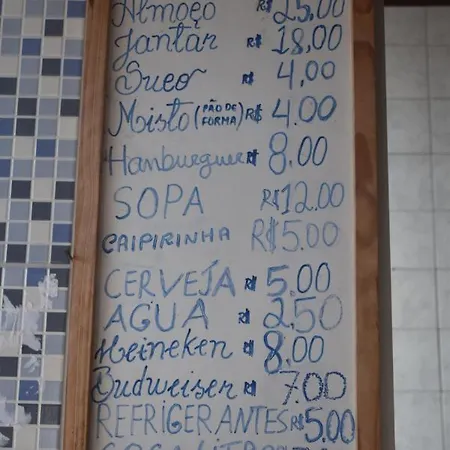 Almoço R$ 25,00
Jantar R$ 18,00
Suco R$ 4,00
Misto (PÃO DE FORMA) R$ 4,00
Hamburguer R$ 8.00
SOPA R$12.00
CAIPIRINHA R$5.00
CERVEJA R$ 5.00
AGUA R$ 2,50
Heineken R$ 8.00
Budweiser R$ 7.00
REFRIGERANTES R$5.00